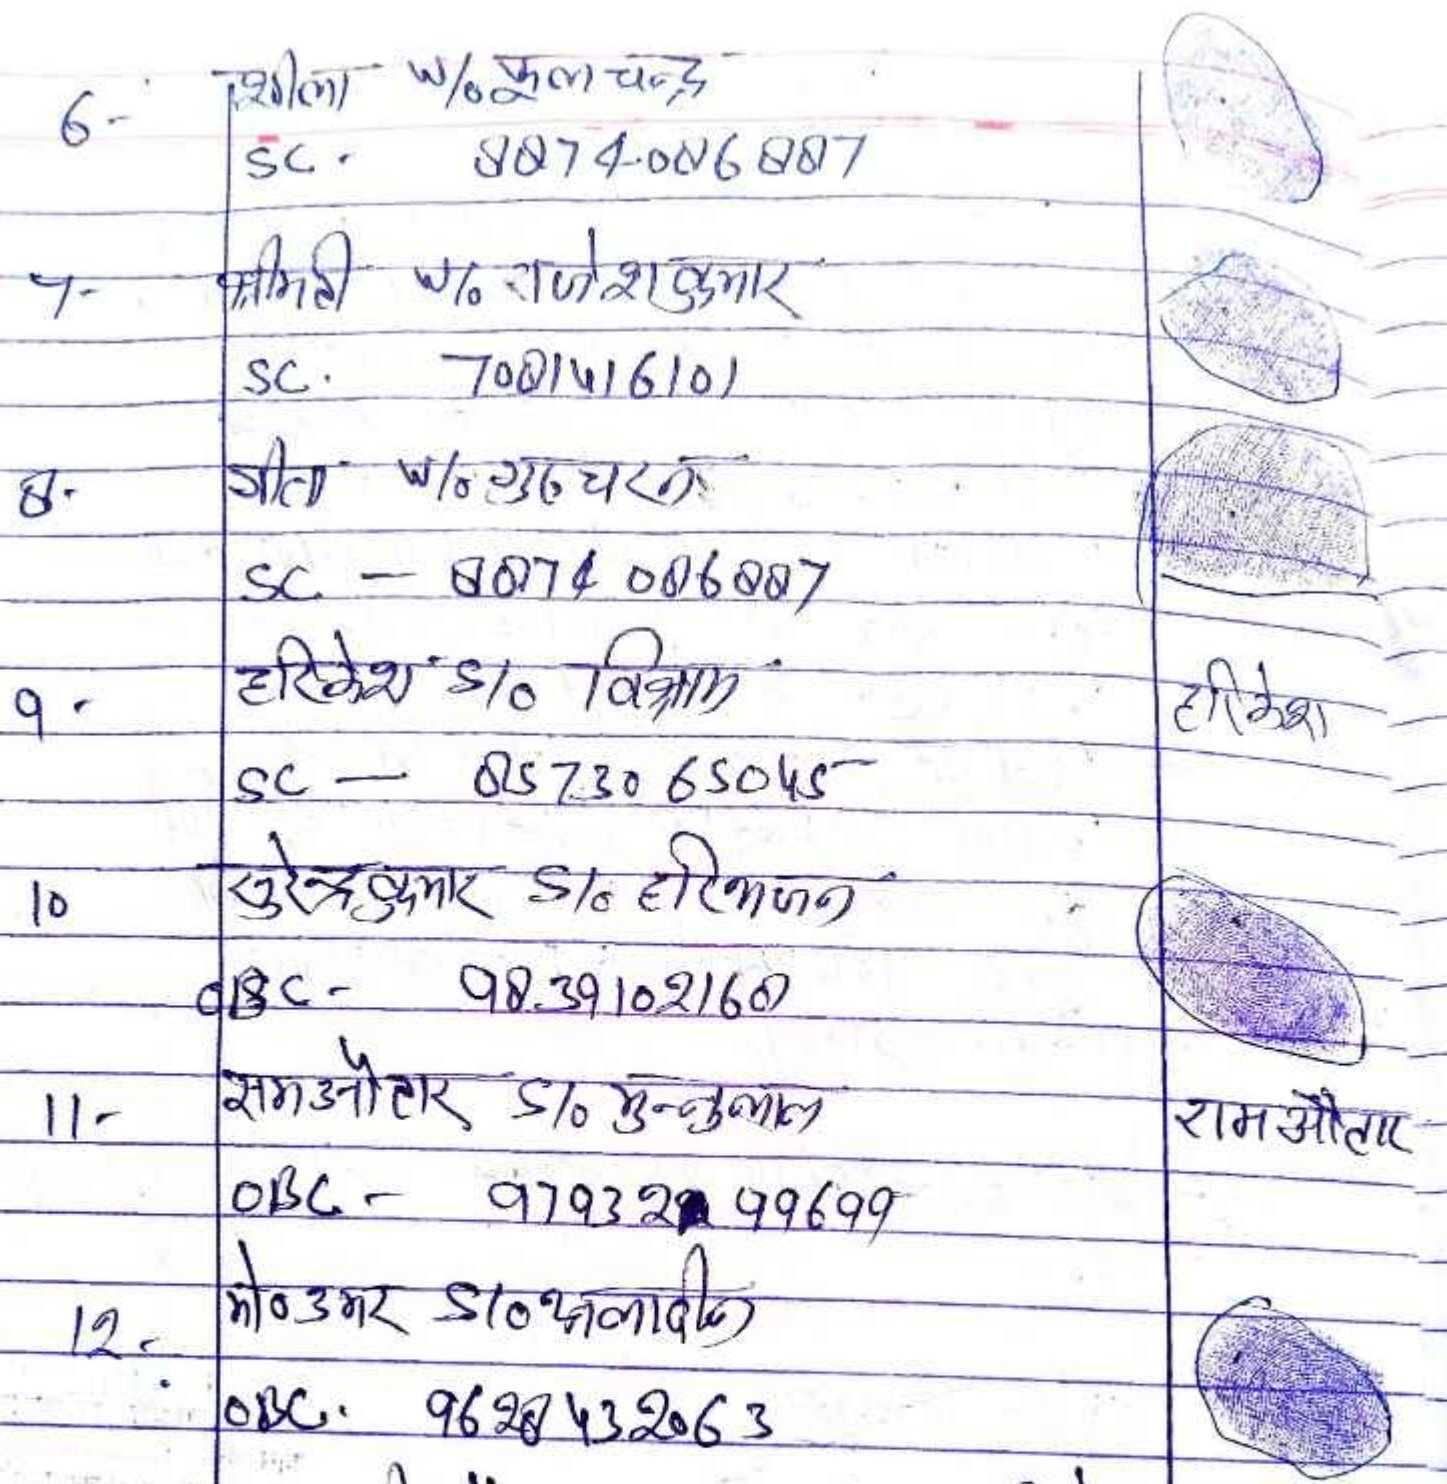 6- शीला W/o फूलचन्द्र
SC. 8874086887
7- श्रीमती W/o राजेश कुमार
SC. 7081416101
8. गीता W/o गुरुचरन
SC — 8874086887
9. हरिकेश S/o विश्राम हरिकेश
SC — 8573065045
10 सुरेन्द्र कुमार S/o हरिभजन
OBC - 9839102168
11- रामऔतार S/o मुन्नुलाल रामऔतार
OBC - 97932 99699
12. मो० उमर S/o
OBC. 9628432063